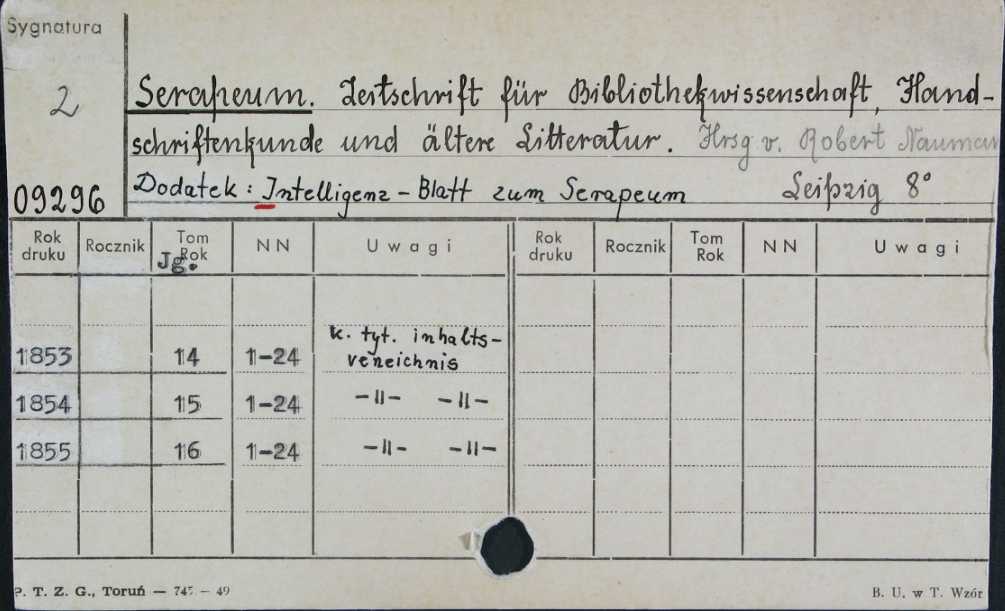 Sygnatura
2
Serapeum. Zeitschrift für Bibliothekwissenschaft, Hand-
schriftenkunde und ältere Litteratur. Hrsg v. Robert Nauman
09296 Dodatek: Intelligenz-Blatt zum Serapeum Leipzig 8°
Rok druku Rocznik Tom Rok Jg. NN Uwagi Rok druku Rocznik Tom Rok NN Uwagi
k. tyt. inhalts-
1853 14 1-24 verzeichnis
1854 15 1-24 -||- -||-
1855 16 1-24 -||- -||-
P. T. Z. G., Toruń — 745 — 49 B. U. w T. Wzór